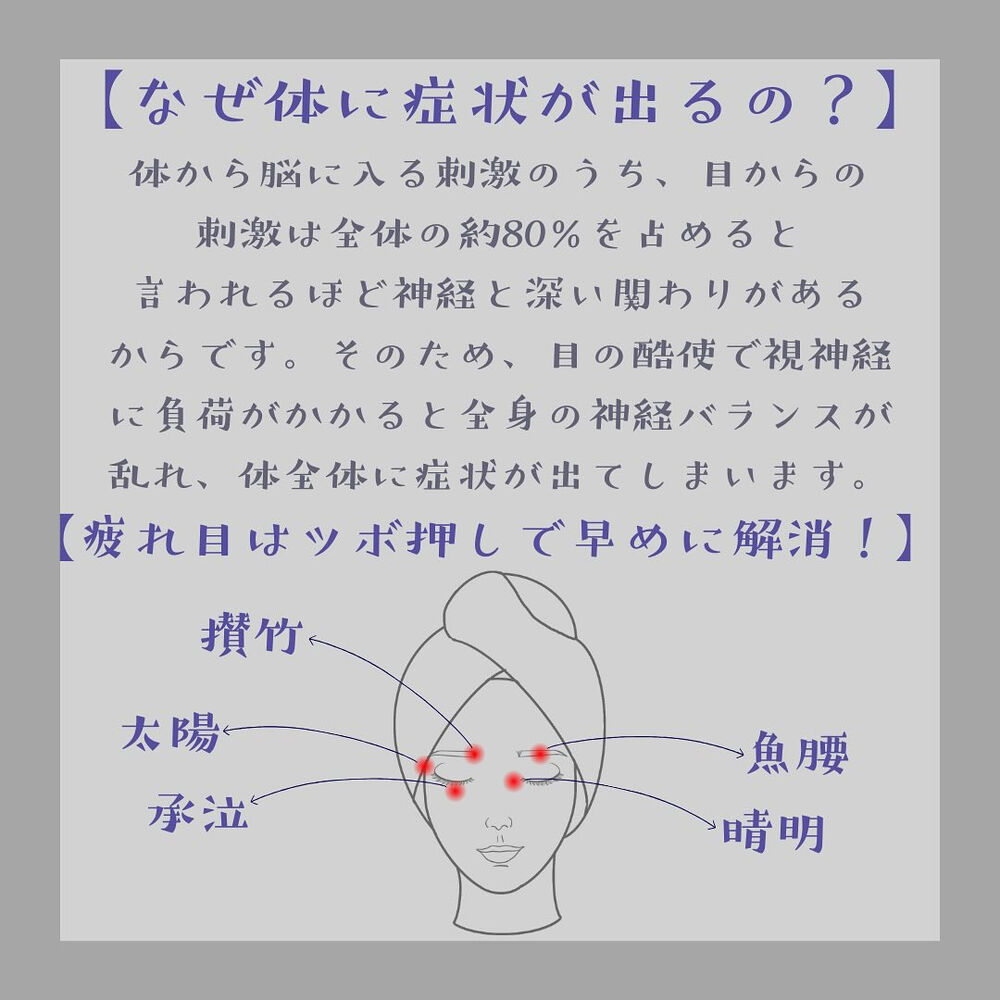 【なぜ体に症状が出るの？】
体から脳に入る刺激のうち、目からの
刺激は全体の約80%を占めると
言われるほど神経と深い関わりがある
からです。そのため、目の酷使で視神経
に負荷がかかると全身の神経バランスが
乱れ、体全体に症状が出てしまいます。
【疲れ目はツボ押しで早めに解消！】
攅竹
太陽
承泣
魚腰
晴明